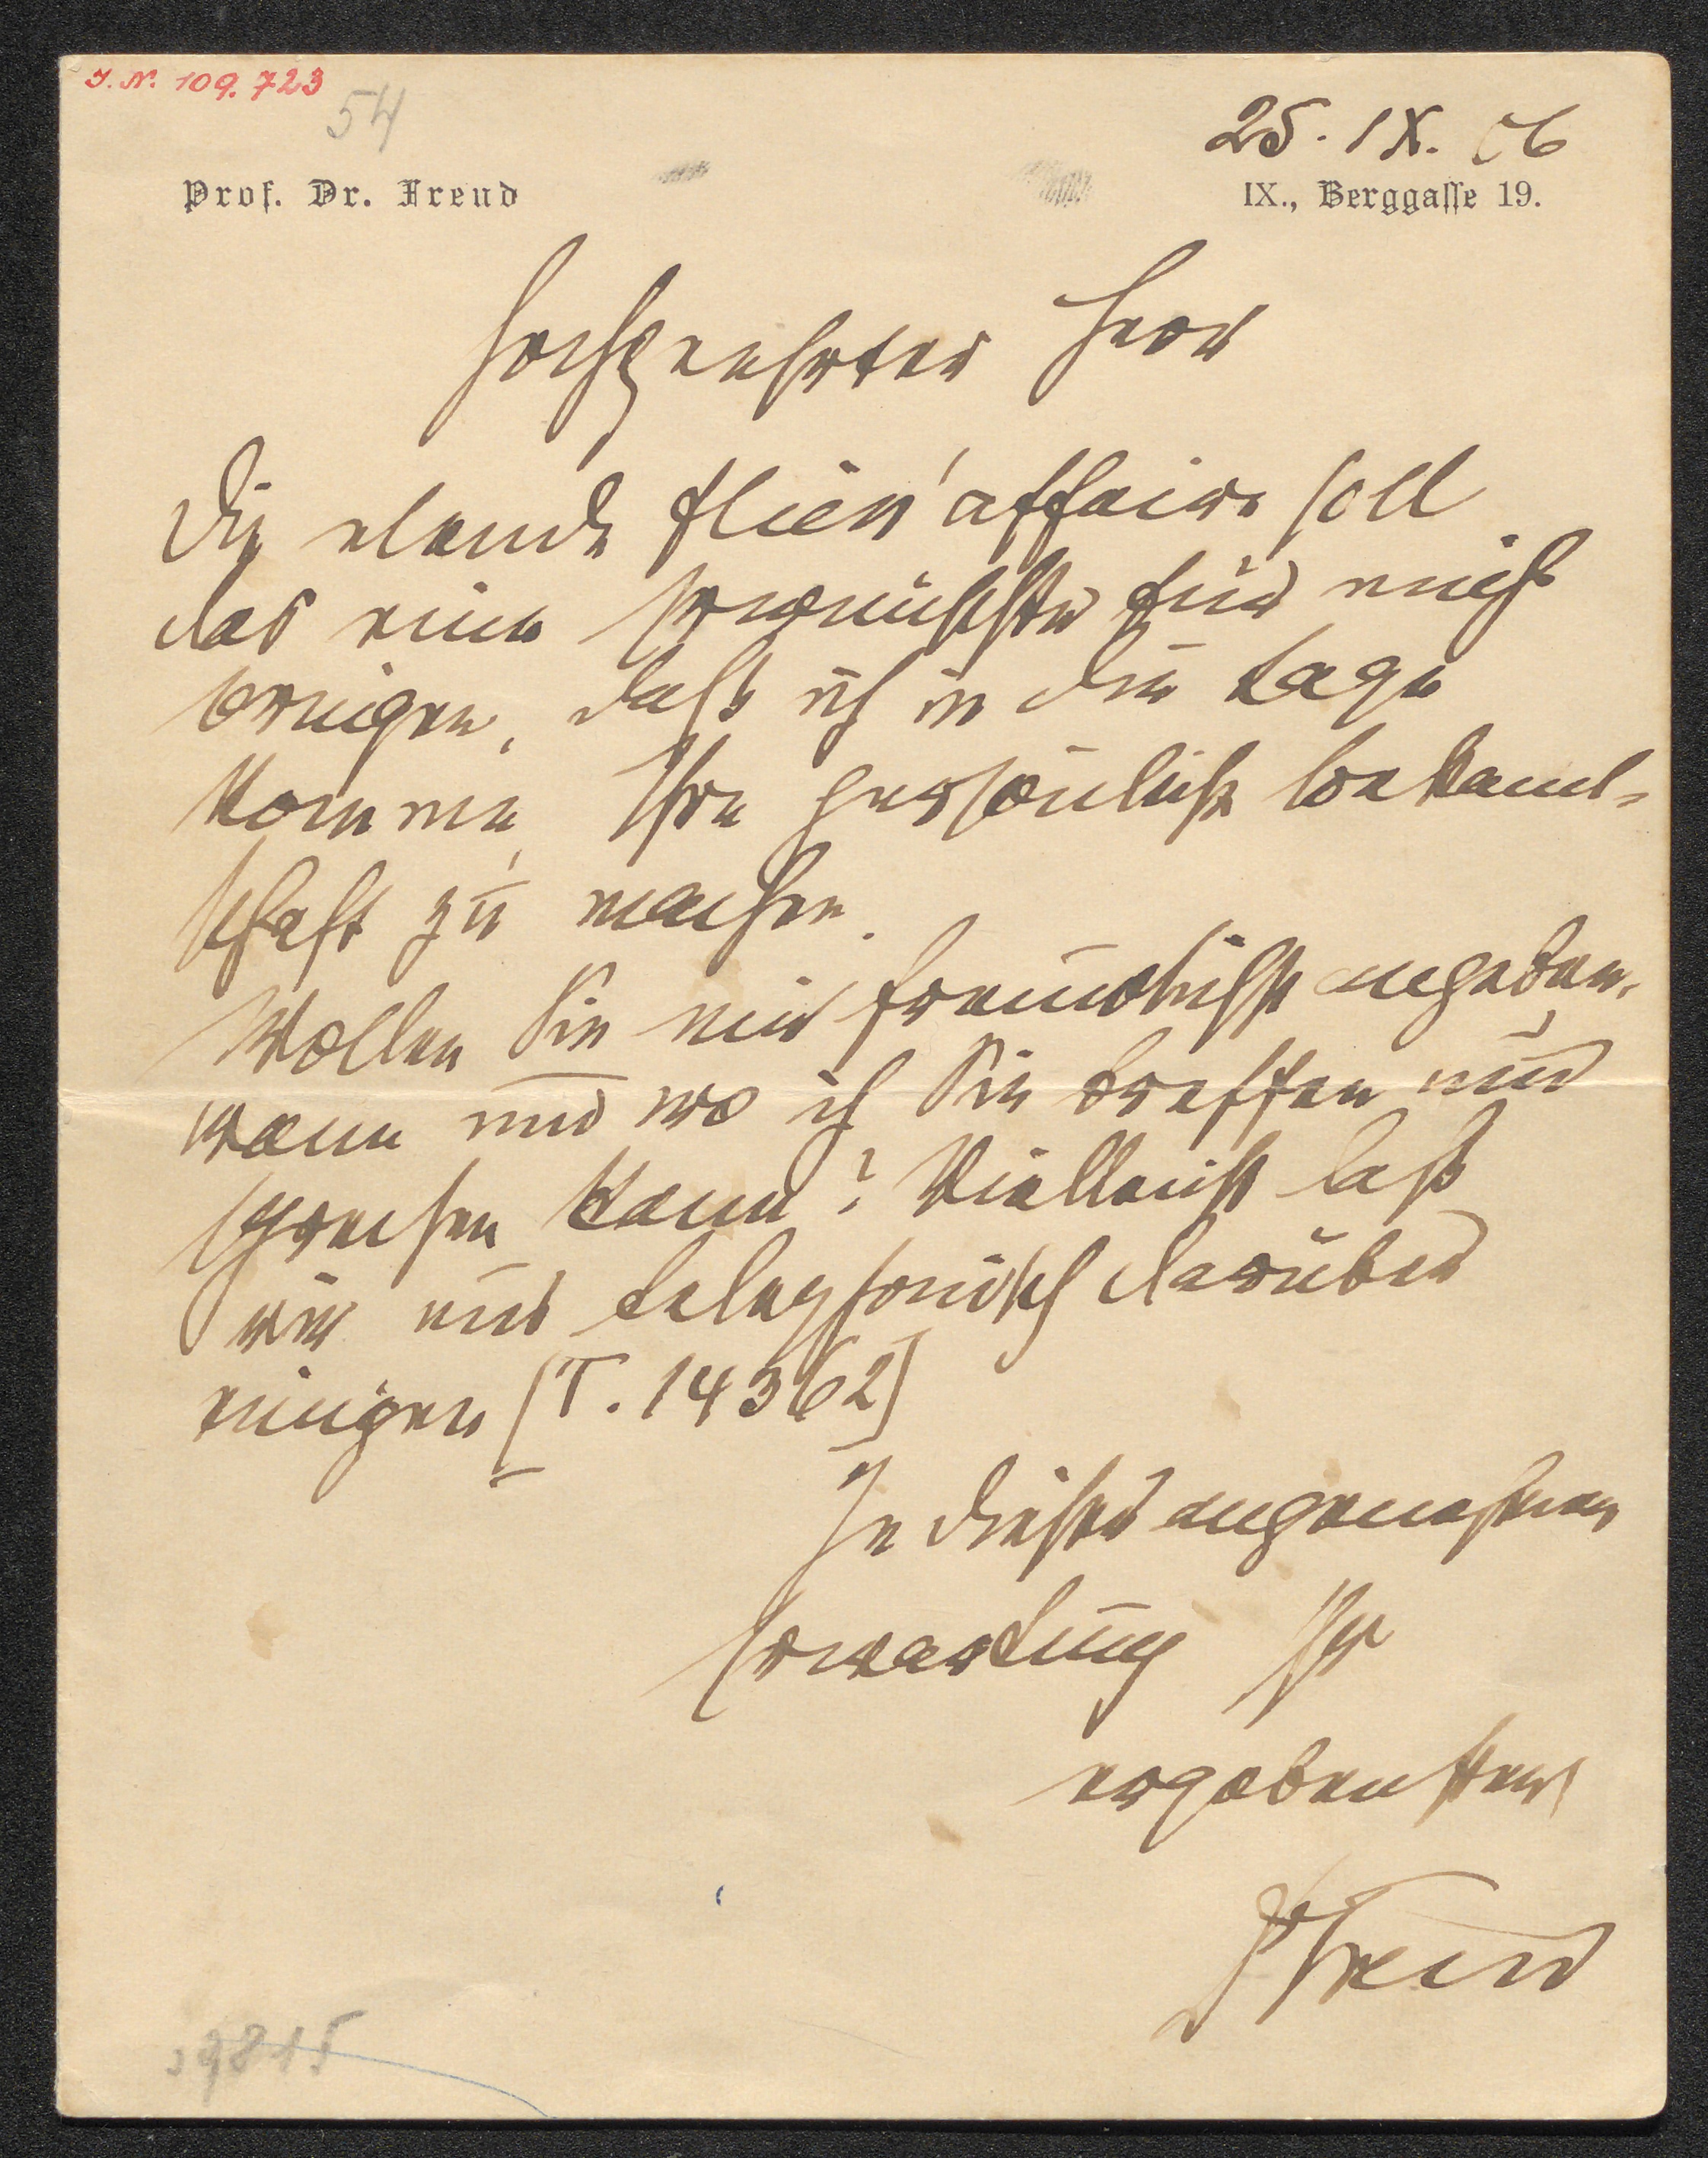 I. N. 109.723
54
25. IX. 06
Prof. Dr. Freud
IX., Berggasse 19.
Hochgeehrter Herr
Die elende Fließ'affaire soll
das eine Erwünschte für mich
bringen, daß ich in die Lage
komme, Ihre persönliche Bekannt-
schaft zu machen.
Wollen Sie mir freundlichst angeben,
wann und wo ich Sie treffen und
sprechen kann? Vielleicht laßt
wir uns telephonisch darüber
einigen [T. 14362]
In dieser angenehmen
Erwartung Ihr
ergebenster
Freud
9815